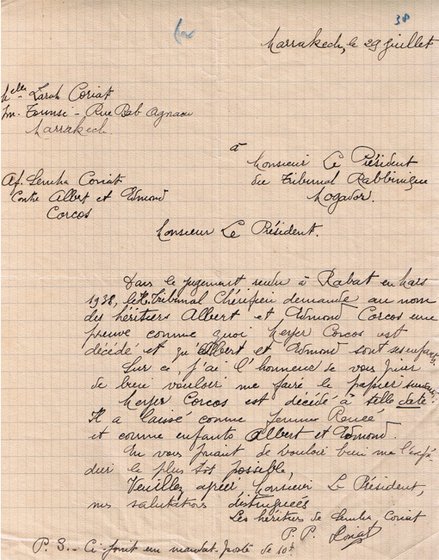 38
Marrakech, le 29 juillet
Melle Zarah Coriat
Im. Tounsi - Rue Bab Agnaou
Marrakech
à
Monsieur Le Président
du Tribunal Rabbinique
Mogador.
Af. Semha Coriat
Contre Albert et Edmond
Corcos
Monsieur Le Président.
Dans le jugement rendu à Rabat en Mars
1938, le H. Tribunal Chérifien demande au nom
des héritiers Albert et Edmond Corcos une
preuve comme quoi Corcos est
décidé et qu'Albert et Edmond sont ses enfants.
Sur ce, j'ai l'honneur de vous prier
de bien vouloir me faire le papier suivant
Corcos est décidé à telle date.
Il a laissé comme femme Renée
et comme enfants Albert et Edmond.
En vous priant de vouloir bien me l'expé
dier le plus tôt possible,
Veuillez agréer Monsieur Le Président,
mes salutations distinguées
Les héritiers de Semha Coriat
P. P. Coriat
P. S. - Ci joint un mandat-poste de 10f